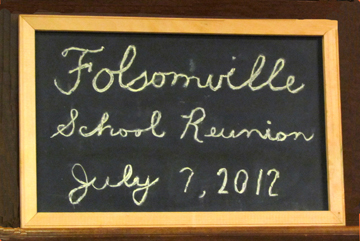 Folsomville
School Reunion
July 7, 2012